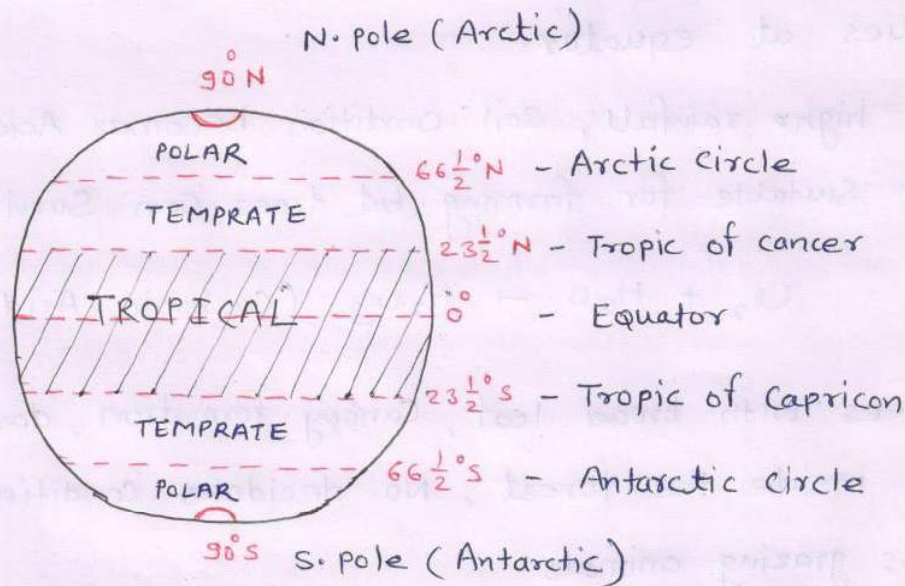 N. pole (Arctic)
90° N
POLAR
66 1/2° N - Arctic Circle
TEMPRATE
23 1/2° N - Tropic of cancer
TROPICAL
0° - Equator
23 1/2° S - Tropic of Capricon
TEMPRATE
66 1/2° S - Antarctic Circle
POLAR
90° S
S. pole (Antarctic)